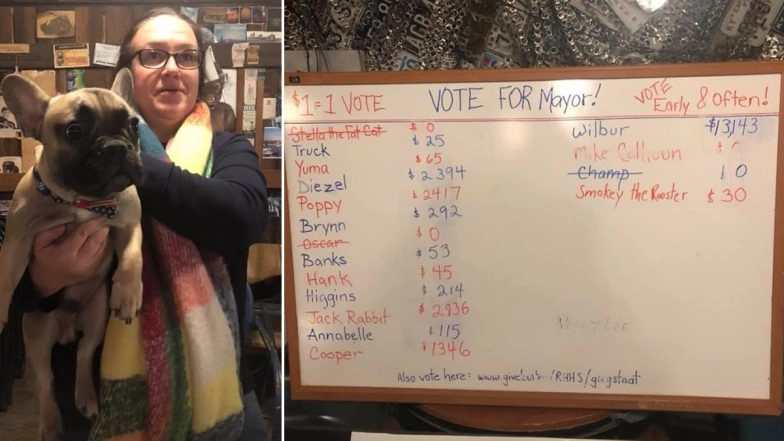 $1=1 VOTE
VOTE FOR Mayor!
VOTE
Early & Often!
Stella the Fat Cat $ 0
Truck $ 25
Yuma $ 65
Diezel $ 2394
Poppy $ 2417
Brynn $ 292
Oscar $ 0
Banks $ 53
Hank $ 45
Higgins $ 214
Jack Rabbit $ 2936
Annabelle $ 115
Cooper $ 1346
Wilbur $13,143
Mike Calhoun $
Champ $ 0
Smokey the Rooster $ 30
Also vote here: /RHHS/